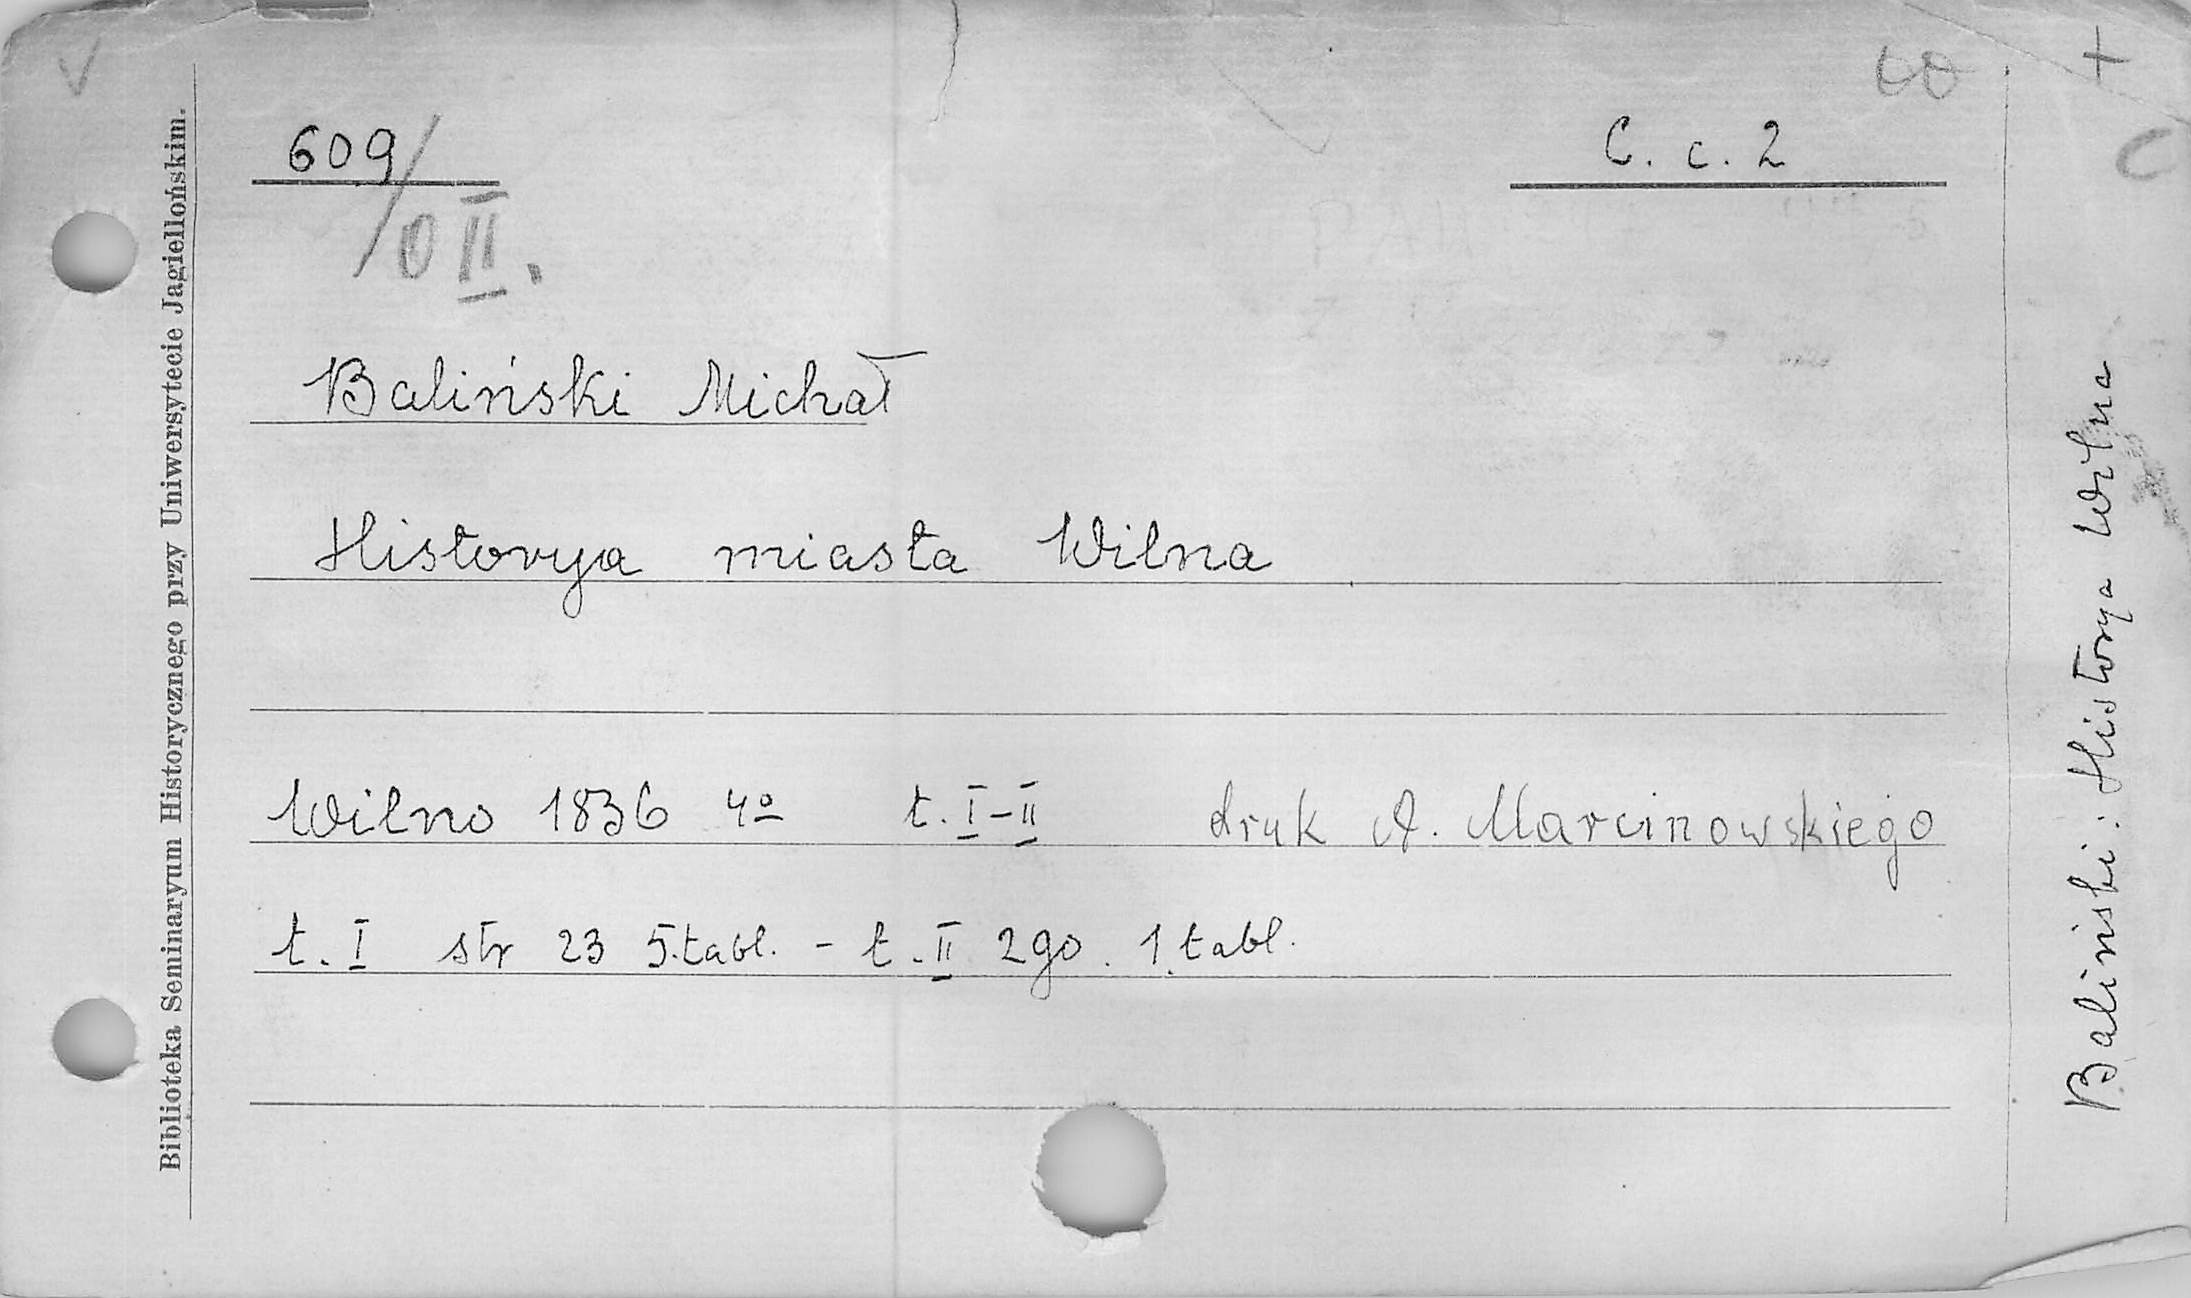 V
co
+
609/
C. c. 2
C
0 II.
Baliński Michał
Historya miasta Wilna
Wilno 1836 4o t. I-II druk A. Marcinowskiego
t. I str 23 5.tabl. - t. II 290. 1.tabl.
Biblioteka Seminaryum Historycznego przy Uniwersytecie Jagiellońskim.
Baliński: Historya Wilna